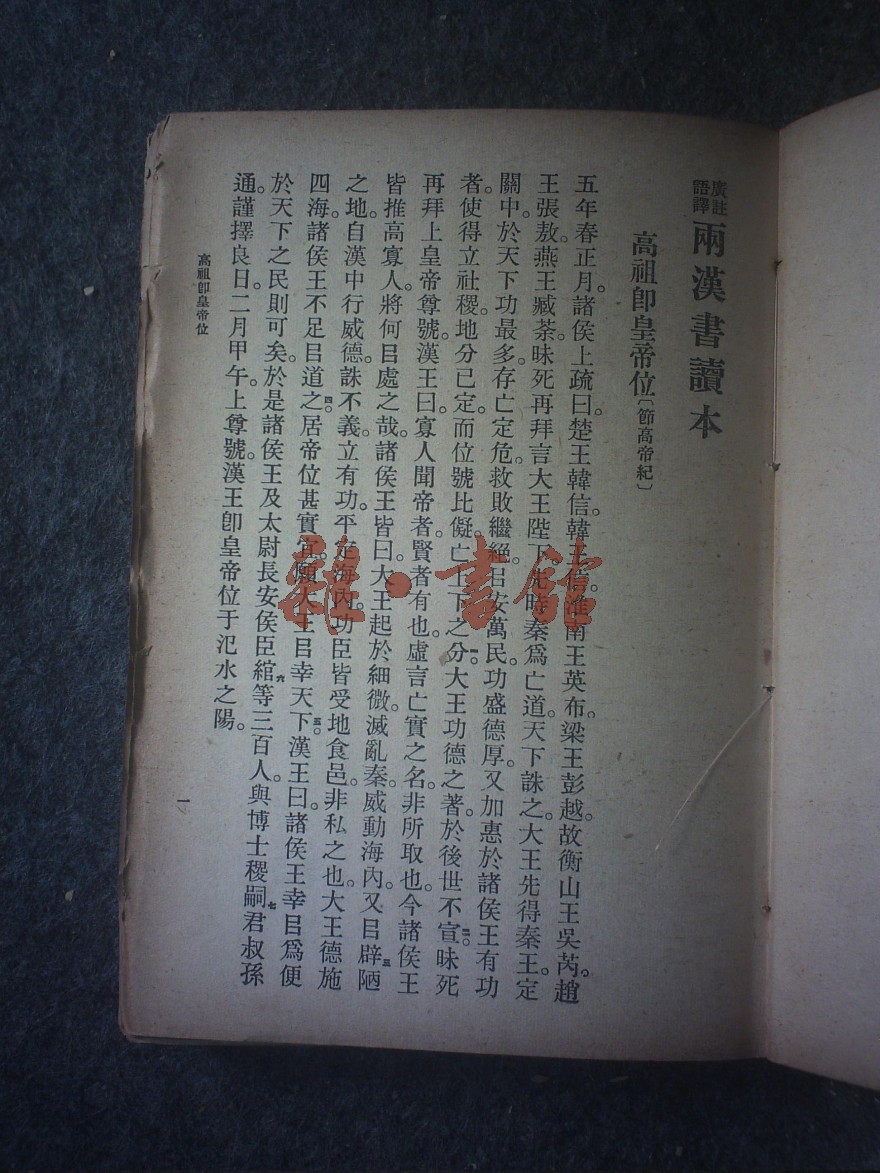 廣註語譯 兩漢書讀本
高祖卽皇帝位〔節高帝紀〕
五年春正月。諸侯上疏曰。楚王韓信。韓王信。淮南王英布。梁王彭越。故衡山王吳芮。趙
王張敖。燕王臧荼。昧死再拜言大王陛下。先時秦爲亡道。天下誅之。大王先得秦王。定
關中。於天下功最多。存亡定危。救敗繼絕。㠯安萬民。功盛德厚。又加惠於諸侯王有功
者。使得立社稷。地分已定。而位號比儗。亡上下之分。一大王功德之著。於後世不宣。二昧死
再拜上皇帝尊號。漢王曰。寡人聞帝者。賢者有也。虛言亡實之名。非所取也。今諸侯王
皆推高寡人。將何㠯處之哉。諸侯王皆曰。大王起於細微。滅亂秦。威動海內。又㠯辟陋三
之地。自漢中行威德。誅不義。立有功。平定海內。功臣皆受地食邑。非私之也。大王德施
四海。諸侯王不足㠯道之。四居帝位甚實宜。願大王㠯幸天下。五漢王曰。諸侯王幸㠯爲便
於天下之民則可矣。於是諸侯王及太尉長安侯臣綰六等三百人。與博士稷嗣七君叔孫
通。謹擇良日。二月甲午。上尊號。漢王卽皇帝位于氾水之陽。
高祖卽皇帝位
一
雜·書館